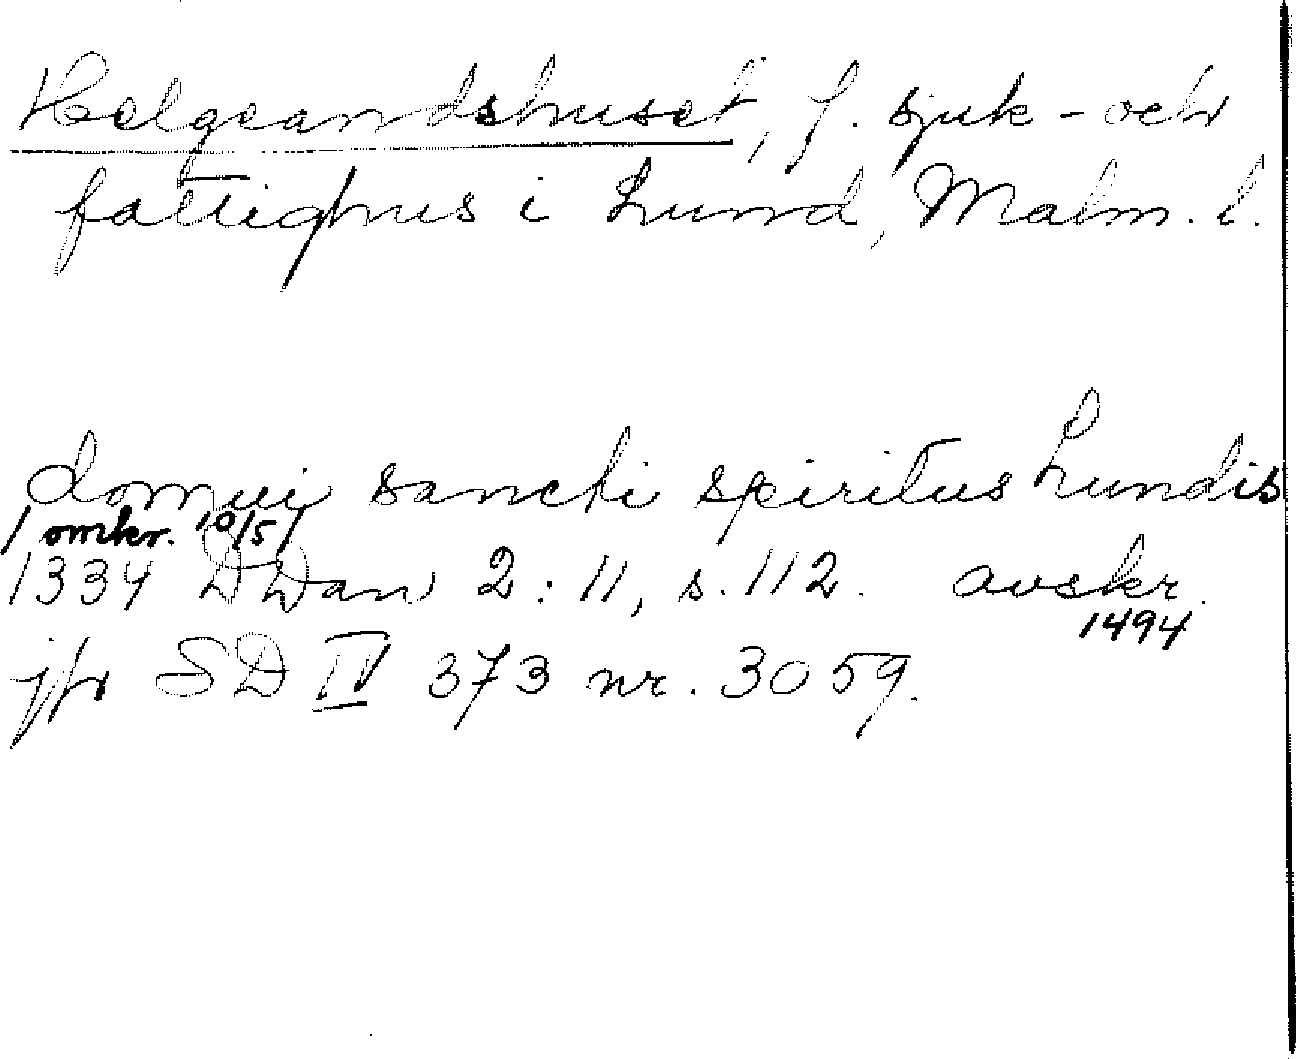 Helgeandshuset, f. sjuk- och
fattighus i Lund, Malm. l.
domui sancti spiritus Lundis
/omkr. 10/5/
1334 DDan 2:11, s. 112. avskr.
1494
jfr SD IV 373 nr. 3059.